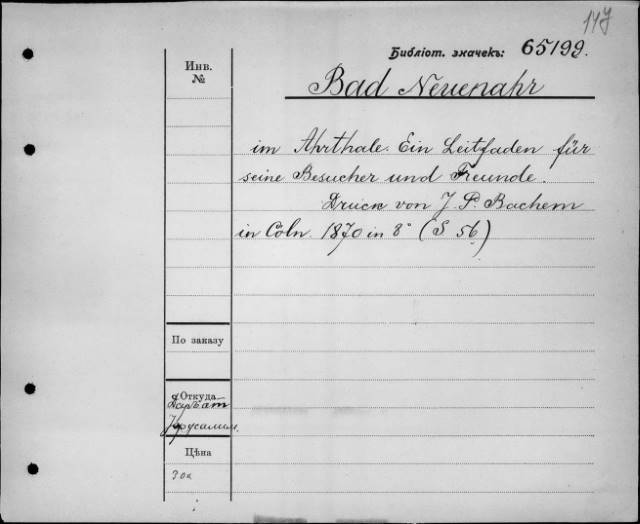 147
Библіот. значекъ: 65199.
Инв.
№
Bad Neuenahr
im Ahrthale. Ein Leitfaden für
seine Besucher und Freunde.
Druck von J. P. Bachem
in Cöln. 1870 in 8° (S 56)
По заказу
Откуда
Цѣна
30к